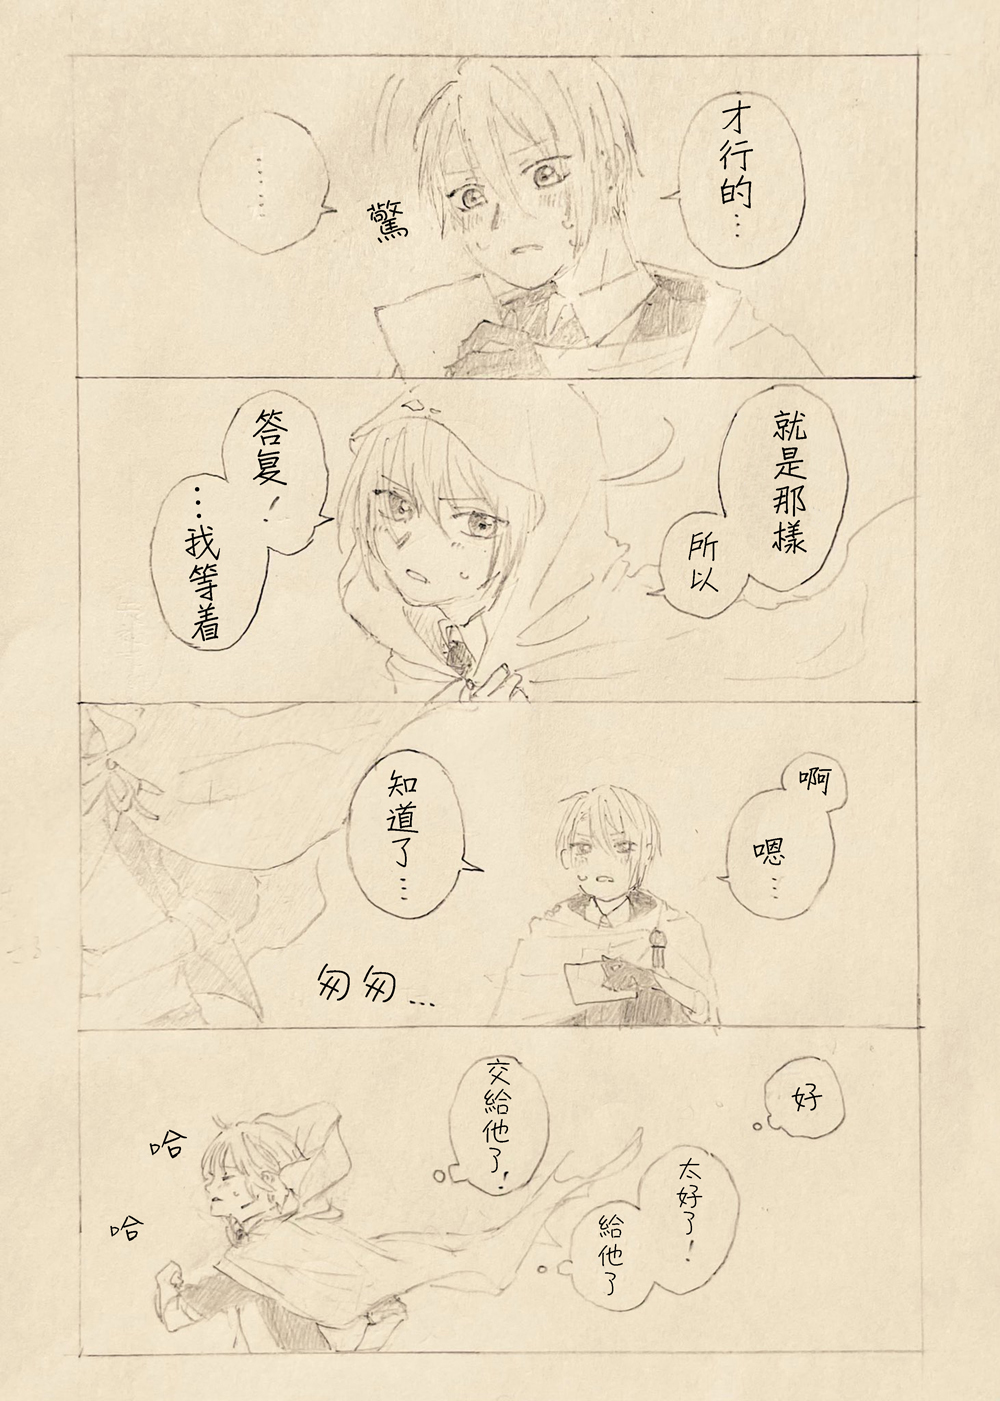 才行的…
驚
……
就是那樣
所以
答复！
…我等着
啊
嗯…
知道了…
匆匆…
好
太好了！
給他了
交給他了！
哈
哈